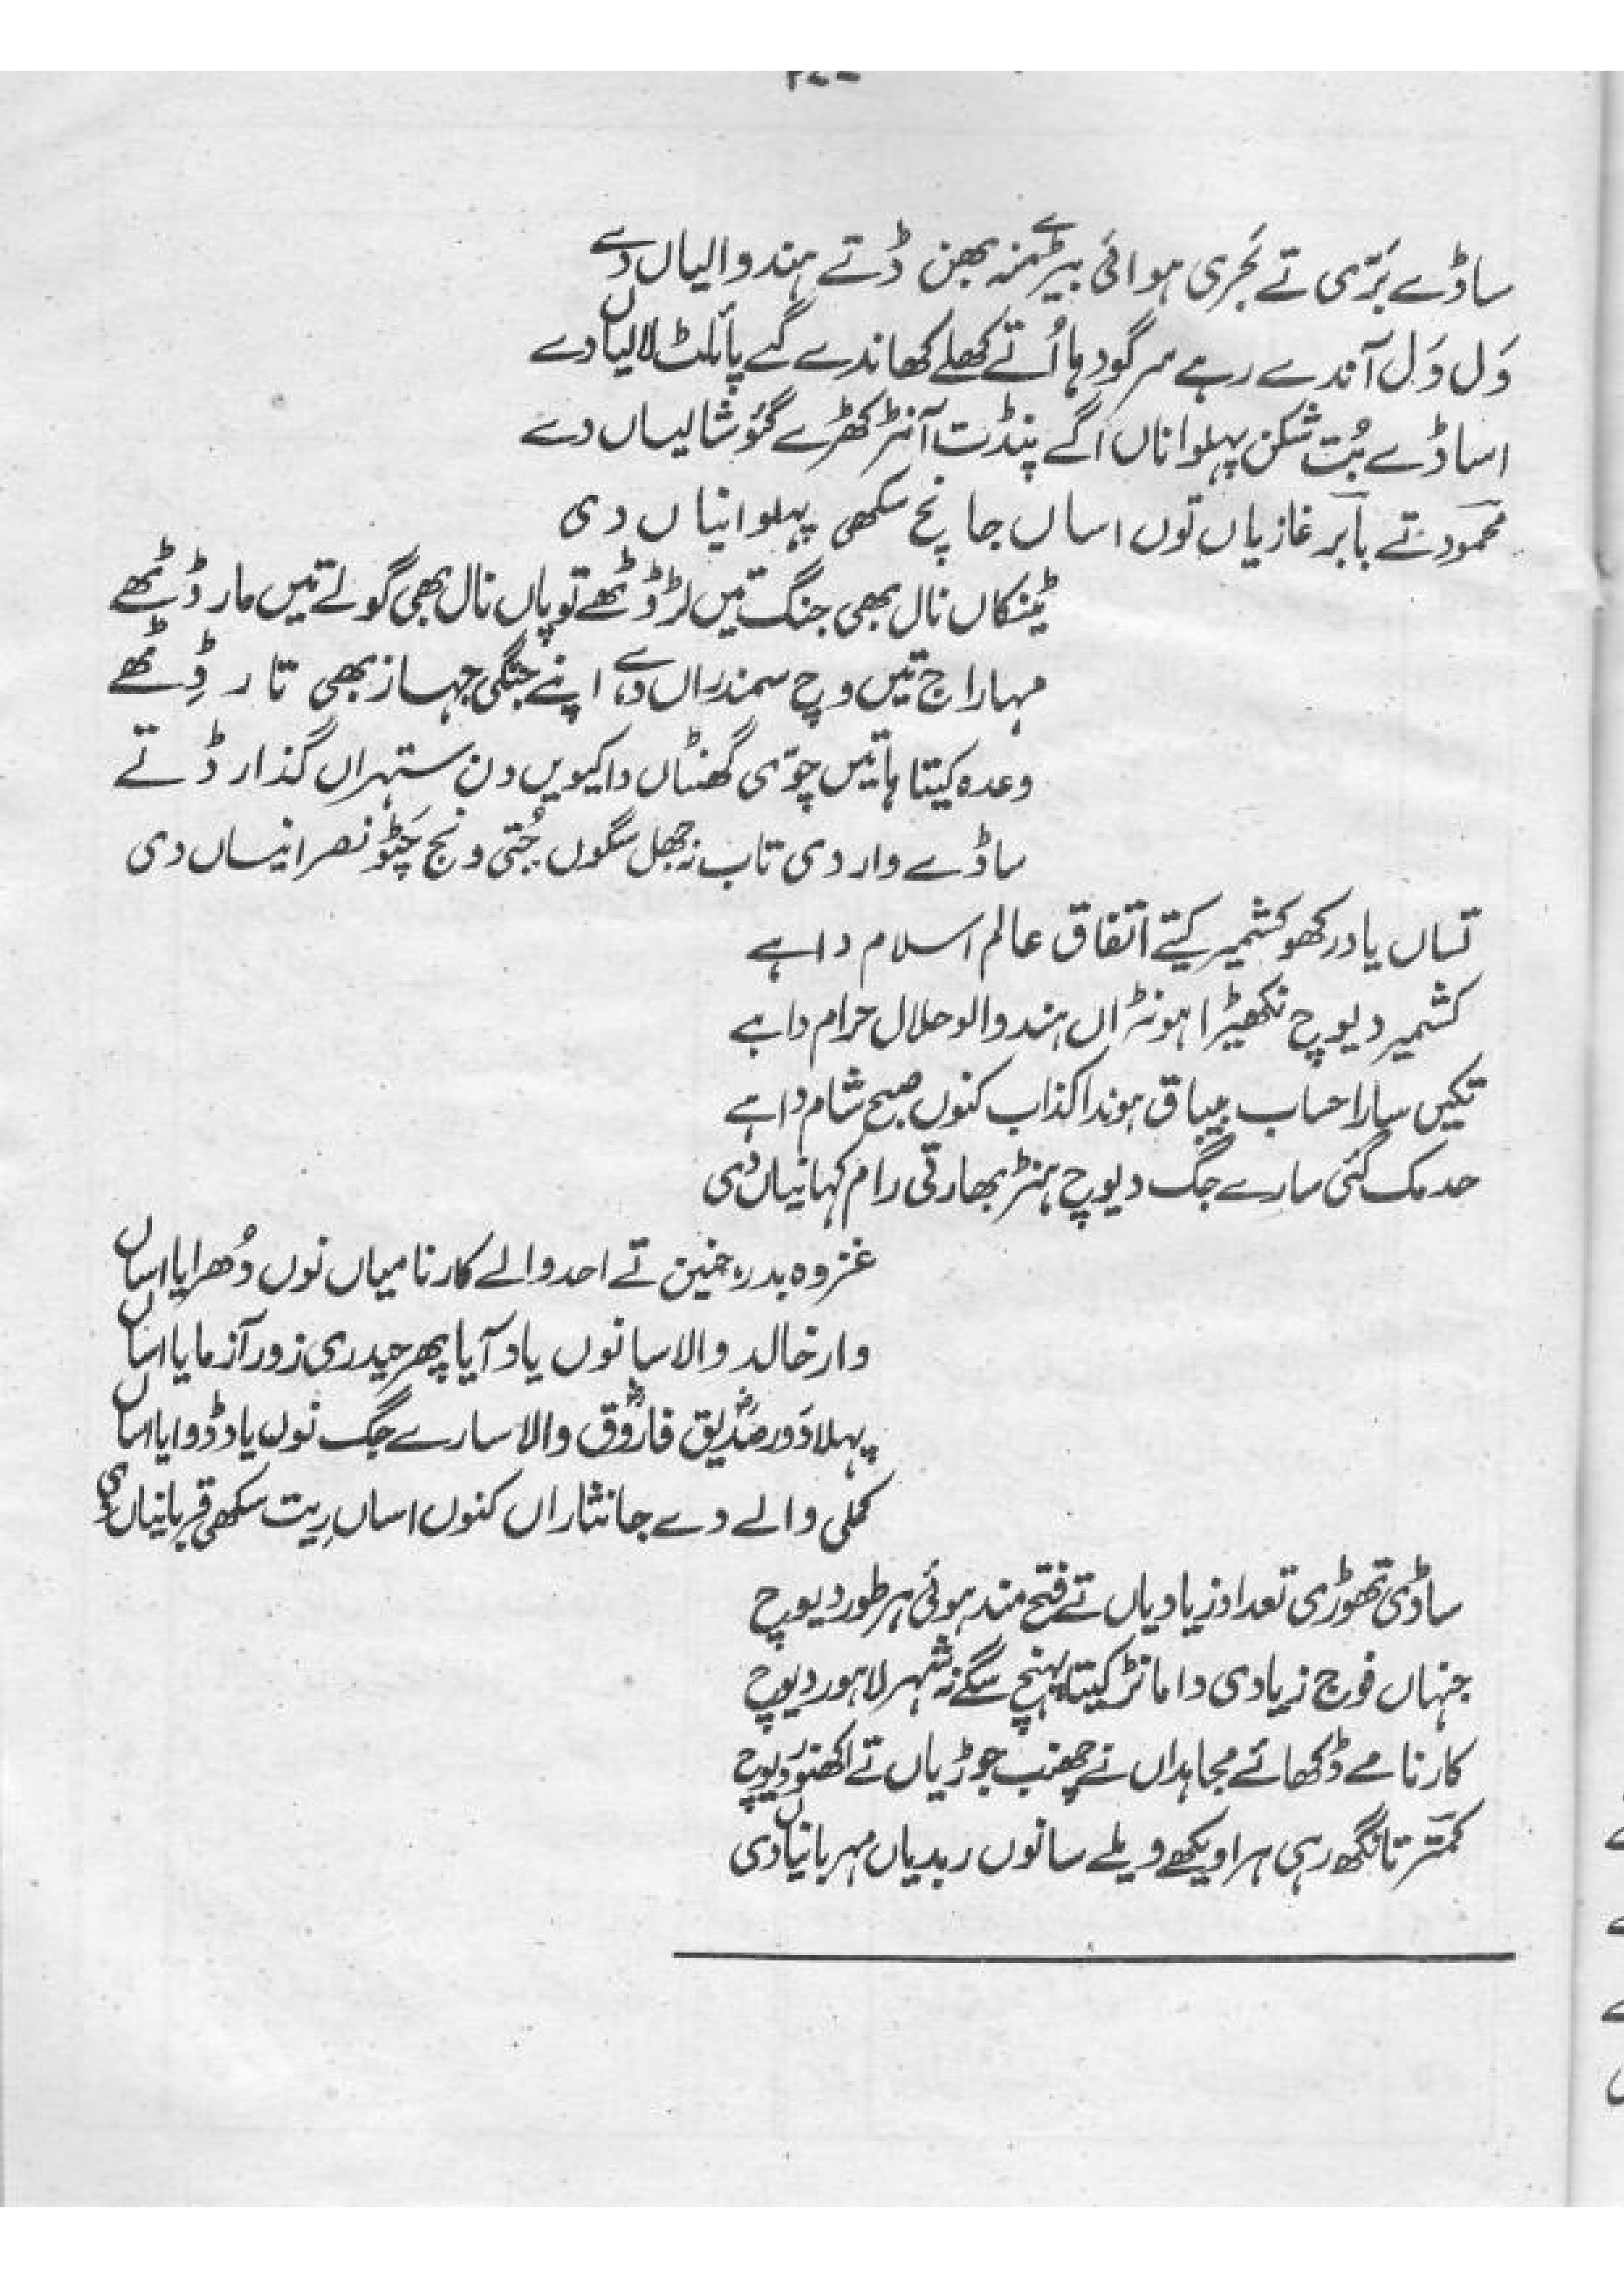 ساڈے بَرّی تے بَحری ہوائی بیڑے منہ بھن ڈتے ہندوالیاں دے
وَل وَل آندے رہے سرگودہا اُتے کھلے کھاندے گے پائلٹ لالیاں دے
اساڈے بُت شکن پہلواناں اگے پنڈت آنڑ کھڑے گئوشالیاں دے
محمود تے بابر غازیاں توں اساں جانچ سکھی پہلوانیاں دی
ٹینکاں نال بھی جنگ تیں لڑ ڈٹھے توپاں نال بھی گولے تیں مار ڈٹھے
مہاراج تیں وچ سمندراں دے اپنے جنگی جہاز بھی تار ڈِٹھے
وعدہ کیتا ہا تیں چوّی گھنٹاں دا کیویں دن ستہراں گذار ڈتے
ساڈے وار دی تاب نہ جھل سگوں جُتی ونج چَٹو نصرانیاں دی
تساں یاد رکھو کشمیر کیتے اتفاق عالم اسلام دا ہے
کشمیر دیوچ نکھیڑا ہونڑاں ہندوالو حلال حرام دا ہے
تکیں سارا حساب بیباق ہوندا کذاب کنوں صبح شام دا ہے
حد مک گئی سارے جگ دیوچ ہنڑ بھارتی رام کہانیاں دی
غزوہ بدر، حنین تے احد والے کارنامیاں نوں دُھرایا اساں
وار خالد والا سانوں یاد آیا پھر حیدری زور آزمایا اساں
پہلا دَور صدیقؓ فاروقؓ والا سارے جگ نوں یاد ڈوایا اساں
کملی والے دے جانثاراں کنوں اساں رِیت سکھی قربانیاں دی
ساڈی تھوڑی تعداد زیادیاں تے فتح مند ہوئی ہر طور دیوچ
جنہاں فوج زیادی دا مانڑ کیتا پہنچ سگے نہ شہر لاہور دیوچ
کارنامے ڈکھائے مجاہداں نے چھنب جوڑیاں تے اکھنور دیوچ
کمتر تانگھ رہی ہر اوکھے ویلے سانوں رب دیاں مہربانیاں دی